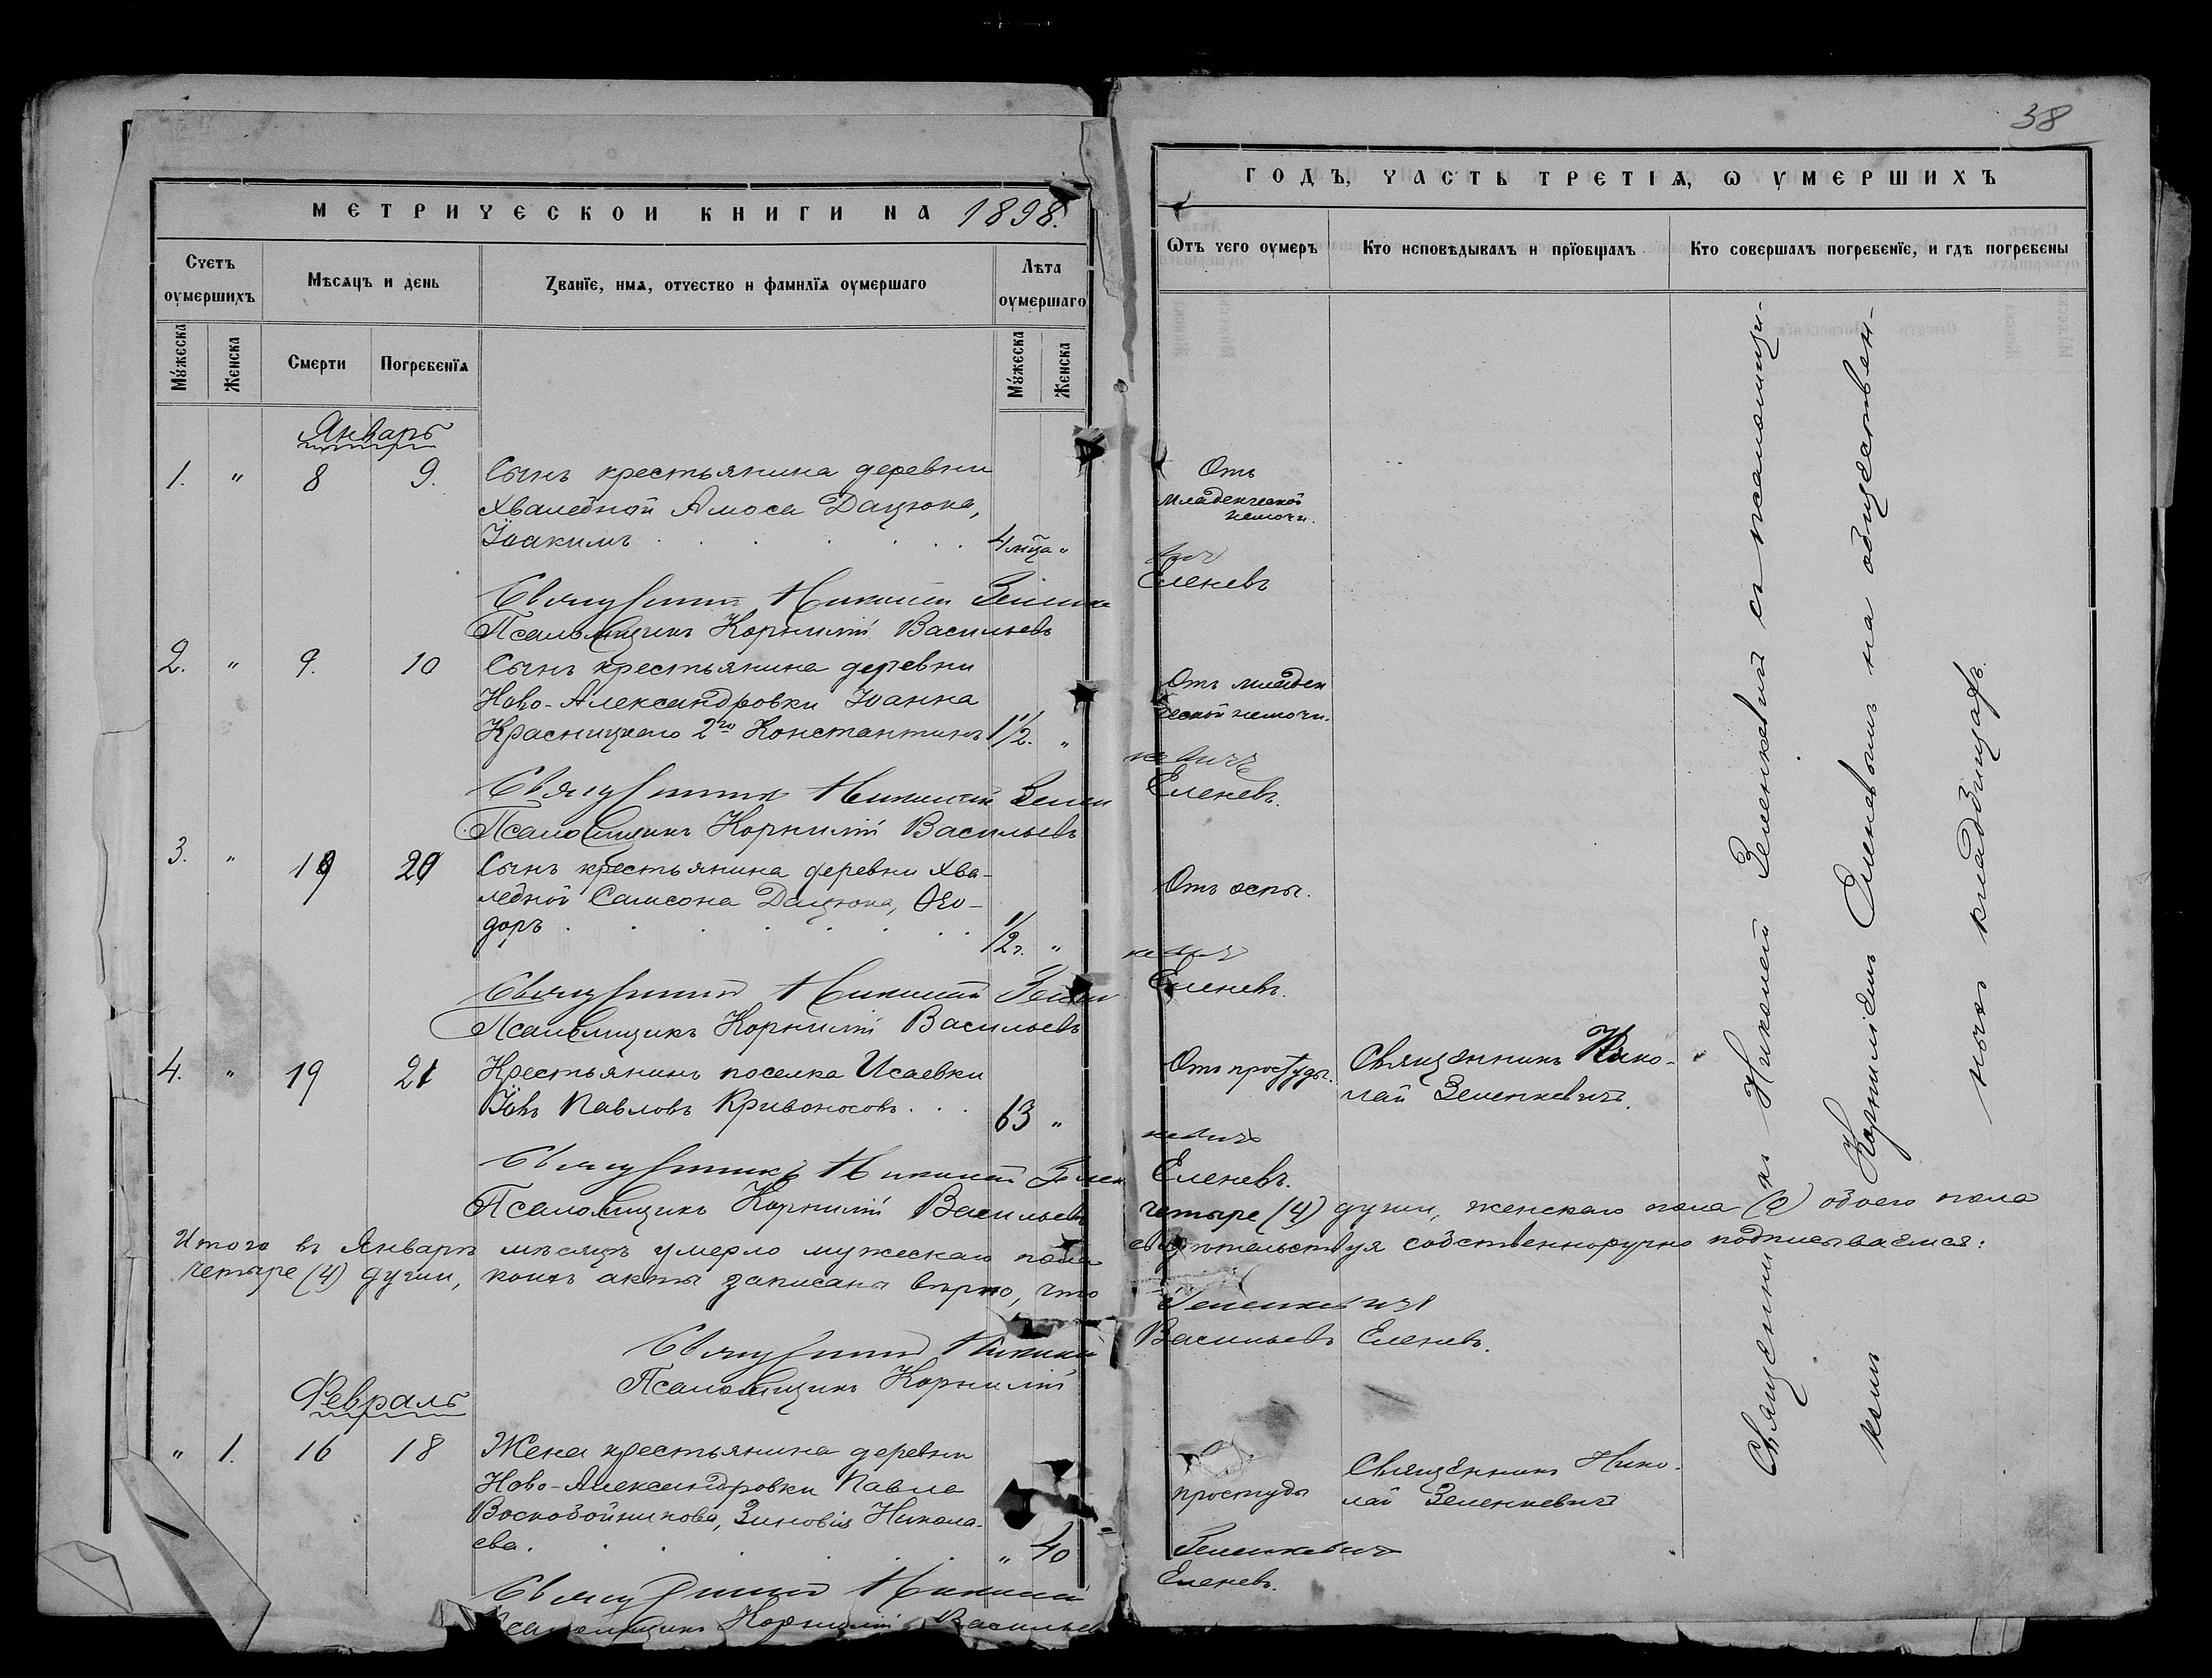 38
МЕТРИЧЕСКОИ КНИГИ НА 1898.
Счетъ оумершихъ
Мѣсяцъ и день
Званїе, имѧ, отчество и фамилїѧ оумершаго
Лѣта оумершаго
Мꙋжеска
Женска
Смерти
Погребенїѧ
Мꙋжеска
Женска
Январь
1. " 8 9. Сынъ крестьянина деревни
Хваледной Амоса Дацюка,
Іоакимъ . . . . . . 4 мца "
Священникъ Николай Зелен
Псаломщикъ Корнилій Васильевъ
2. " 9. 10 Сынъ крестьянина деревни
Ново-Александровки Іоанна
Красницкаго 2го Константинъ 1½. "
Священникъ Николай Зелен
Псаломщикъ Корнилій Васильевъ
3. " 19 20 Сынъ крестьянина деревни Хва-
ледной Самсона Дацюка, Ѳео-
доръ . . . . . . . ½ г. "
Священникъ Николай Зелен
Псаломщикъ Корнилій Васильевъ
4. " 19 21 Крестьянинъ поселка Исаевки
Іовъ Павловъ Кривоносовъ . . . 63 "
Священникъ Николай Зелен
Псаломщикъ Корнилій Васильевъ
Итого въ Январѣ мѣсяцѣ умерло мужескаго пола
четыре (4) души, коихъ акты записаны вѣрно, что
Священникъ Николай
Псаломщикъ Корнилій
Февраль
" 1. 16 18 Жена крестьянина деревни
Ново-Александровки Павла
Воскобойникова, Зиновія Никола-
ева. . . . . . . " 40
Священникъ Николай
Псаломщикъ Корнилій Васильев
ГОДЪ, ЧАСТЬ ТРЕТІѦ, Ѡ ОУМЕРШИХЪ
Ѿтъ чего оумеръ
Кто исповѣдывалъ и прїобщалъ
Кто совершалъ погребенїе, и гдѣ погребены
Отъ
младенческой
немочи.
вич
Еленевъ
Отъ младен
ческой немочи.
кевичъ
Еленевъ.
Отъ оспы.
кевич
Еленевъ.
Отъ простуды. Священникъ Нико-
лай Зеленкевичъ.
кевичъ
Еленевъ.
четыре (4) души, женскаго пола (0) обоего пола
свидѣтельствуя собственноручно подписываемся:
Зеленкевичъ
Васильевъ Еленевъ.
простуды
Священникъ Нико-
лай Зеленкевичъ
Зеленкевичъ
Еленевъ.
Священникъ Николай Зеленкевичъ съ псаломщи-
комъ Корниліемъ Еленевымъ на общественномъ
кладбищахъ.